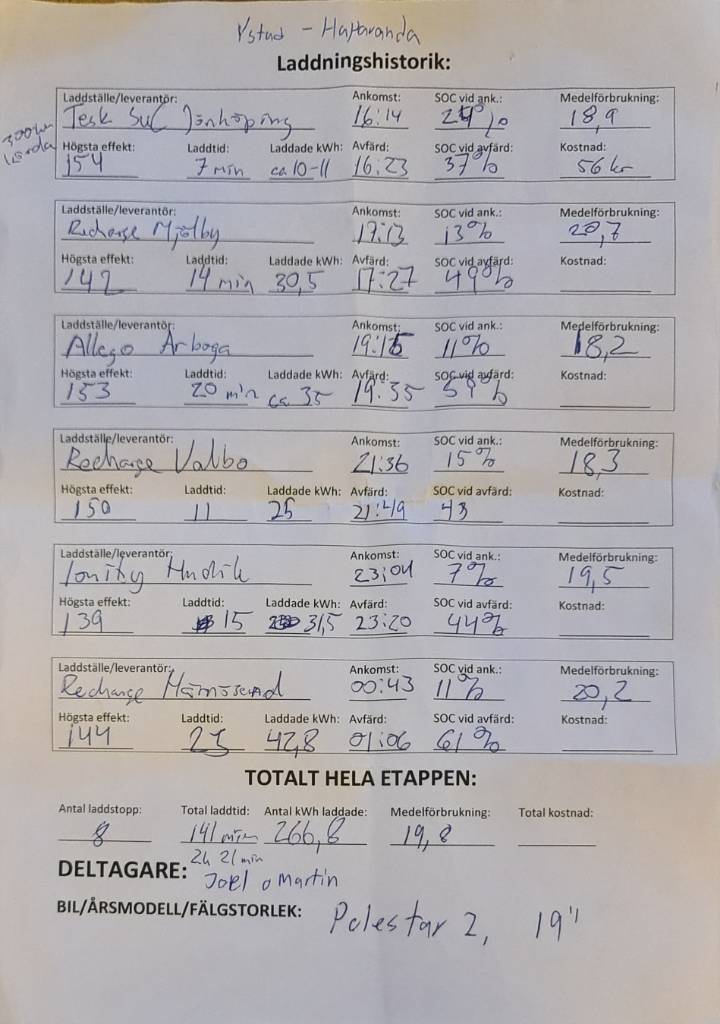 Ystad - Haparanda
Laddningshistorik:
Laddställe/leverantör: Ankomst: SOC vid ank.: Medelförbrukning:
Tesk SuC Jönköping 16:14 % 18,9
300
Högsta effekt: Laddtid: Laddade kWh: Avfärd: SOC vid avfärd: Kostnad:
154 7 min ca 10-11 16:23 37% 56 kr
Laddställe/leverantör: Ankomst: SOC vid ank.: Medelförbrukning:
Recharge Mjölby 17:13 13% 20,7
Högsta effekt: Laddtid: Laddade kWh: Avfärd: SOC vid avfärd: Kostnad:
142 14 min 30,5 17:27 49%
Laddställe/leverantör: Ankomst: SOC vid ank.: Medelförbrukning:
Allego Arboga 19:15 11% 18,2
Högsta effekt: Laddtid: Laddade kWh: Avfärd: SOC vid avfärd: Kostnad:
153 20 min ca 35 19:35 59%
Laddställe/leverantör: Ankomst: SOC vid ank.: Medelförbrukning:
Recharge Valbo 21:36 15% 18,3
Högsta effekt: Laddtid: Laddade kWh: Avfärd: SOC vid avfärd: Kostnad:
150 11 25 21:49 43
Laddställe/leverantör: Ankomst: SOC vid ank.: Medelförbrukning:
Ionity Hudik 23:04 7% 19,5
Högsta effekt: Laddtid: Laddade kWh: Avfärd: SOC vid avfärd: Kostnad:
139 15 31,5 23:20 44%
Laddställe/leverantör: Ankomst: SOC vid ank.: Medelförbrukning:
Recharge Härnösand 00:43 11% 20,2
Högsta effekt: Laddtid: Laddade kWh: Avfärd: SOC vid avfärd: Kostnad:
144 23 42,8 01:06 61%
TOTALT HELA ETAPPEN:
Antal laddstopp: Total laddtid: Antal kWh laddade: Medelförbrukning: Total kostnad:
8 141 min 266,8 19,8
2h 21 min
DELTAGARE: Joel o Martin
BIL/ÅRSMODELL/FÄLGSTORLEK: Polestar 2, 19"